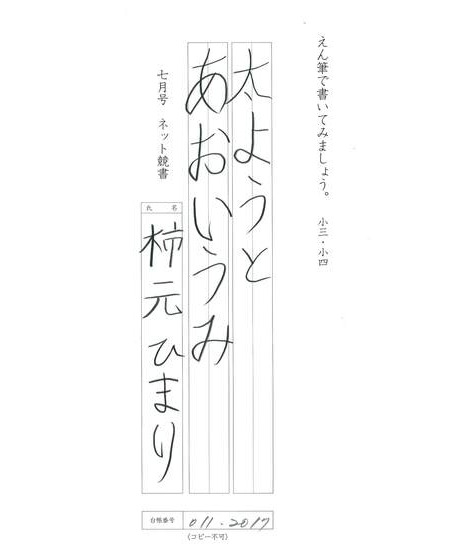 えん筆で書いてみましょう。 小三・小四
太ようと
あおいうみ
七月号 ネット競書
氏名
柿元ひまり
台帳番号 011.2017
(コピー不可)